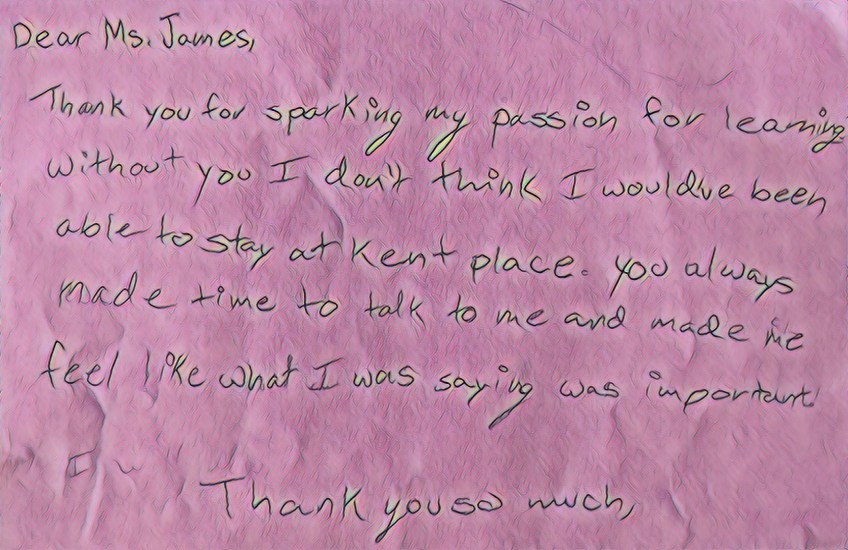 Dear Ms. James,
Thank you for sparking my passion for learning.
without you I don't think I wouldve been
able to stay at Kent place. you always
made time to talk to me and made me
feel like what I was saying was important!
I w
Thank you so much,